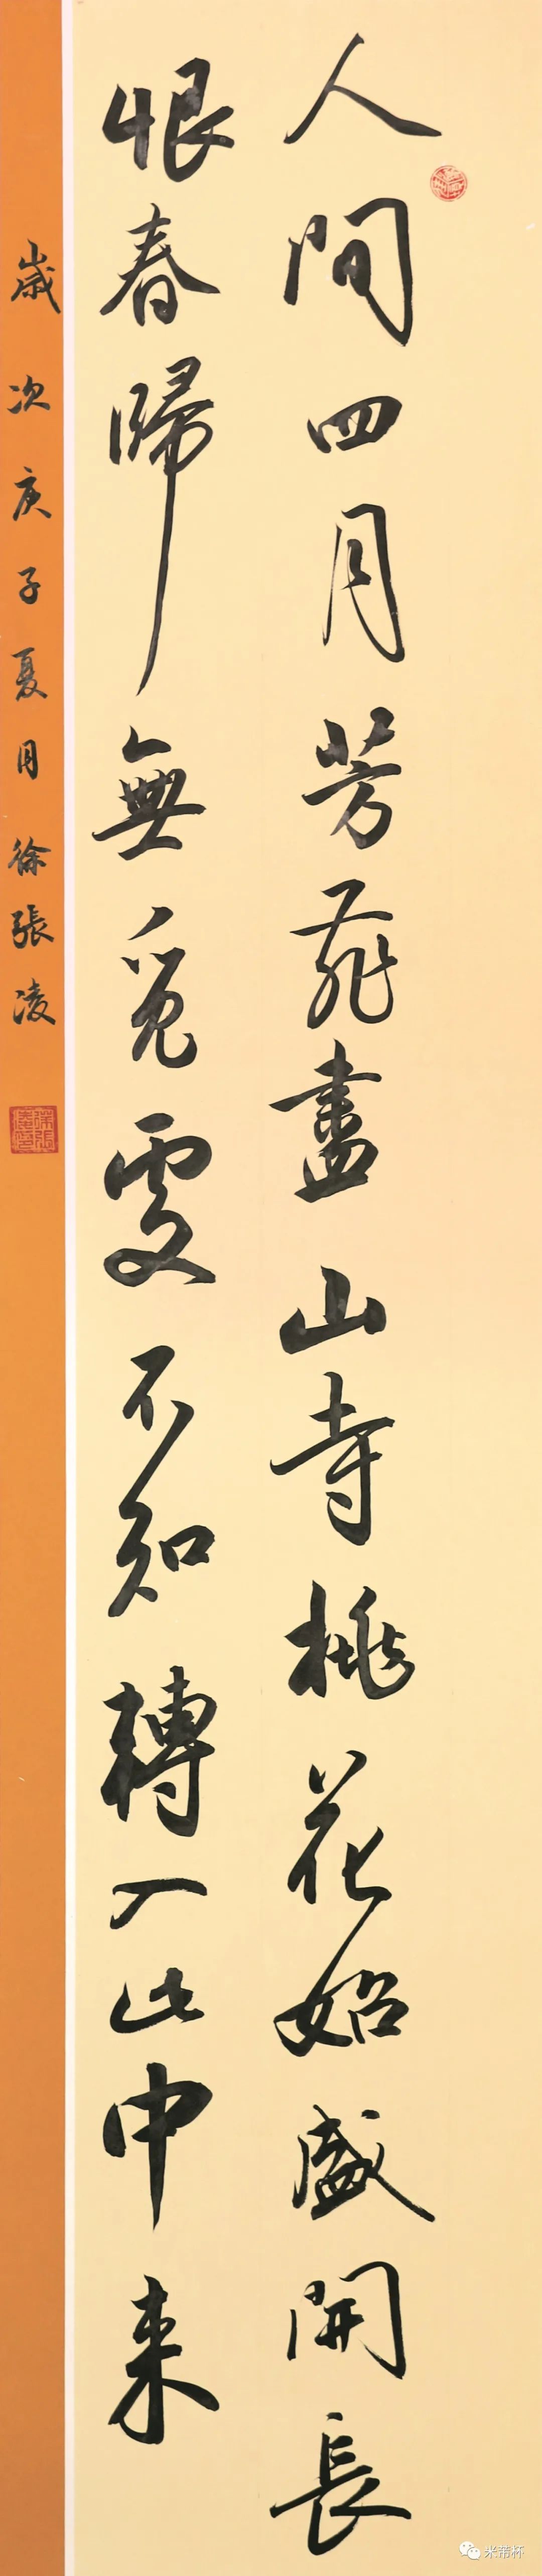 人間四月芳菲盡山寺桃花始盛開長
恨春歸無覓處不知轉入此中来
歲次庚子夏月徐張凌
米芾杯